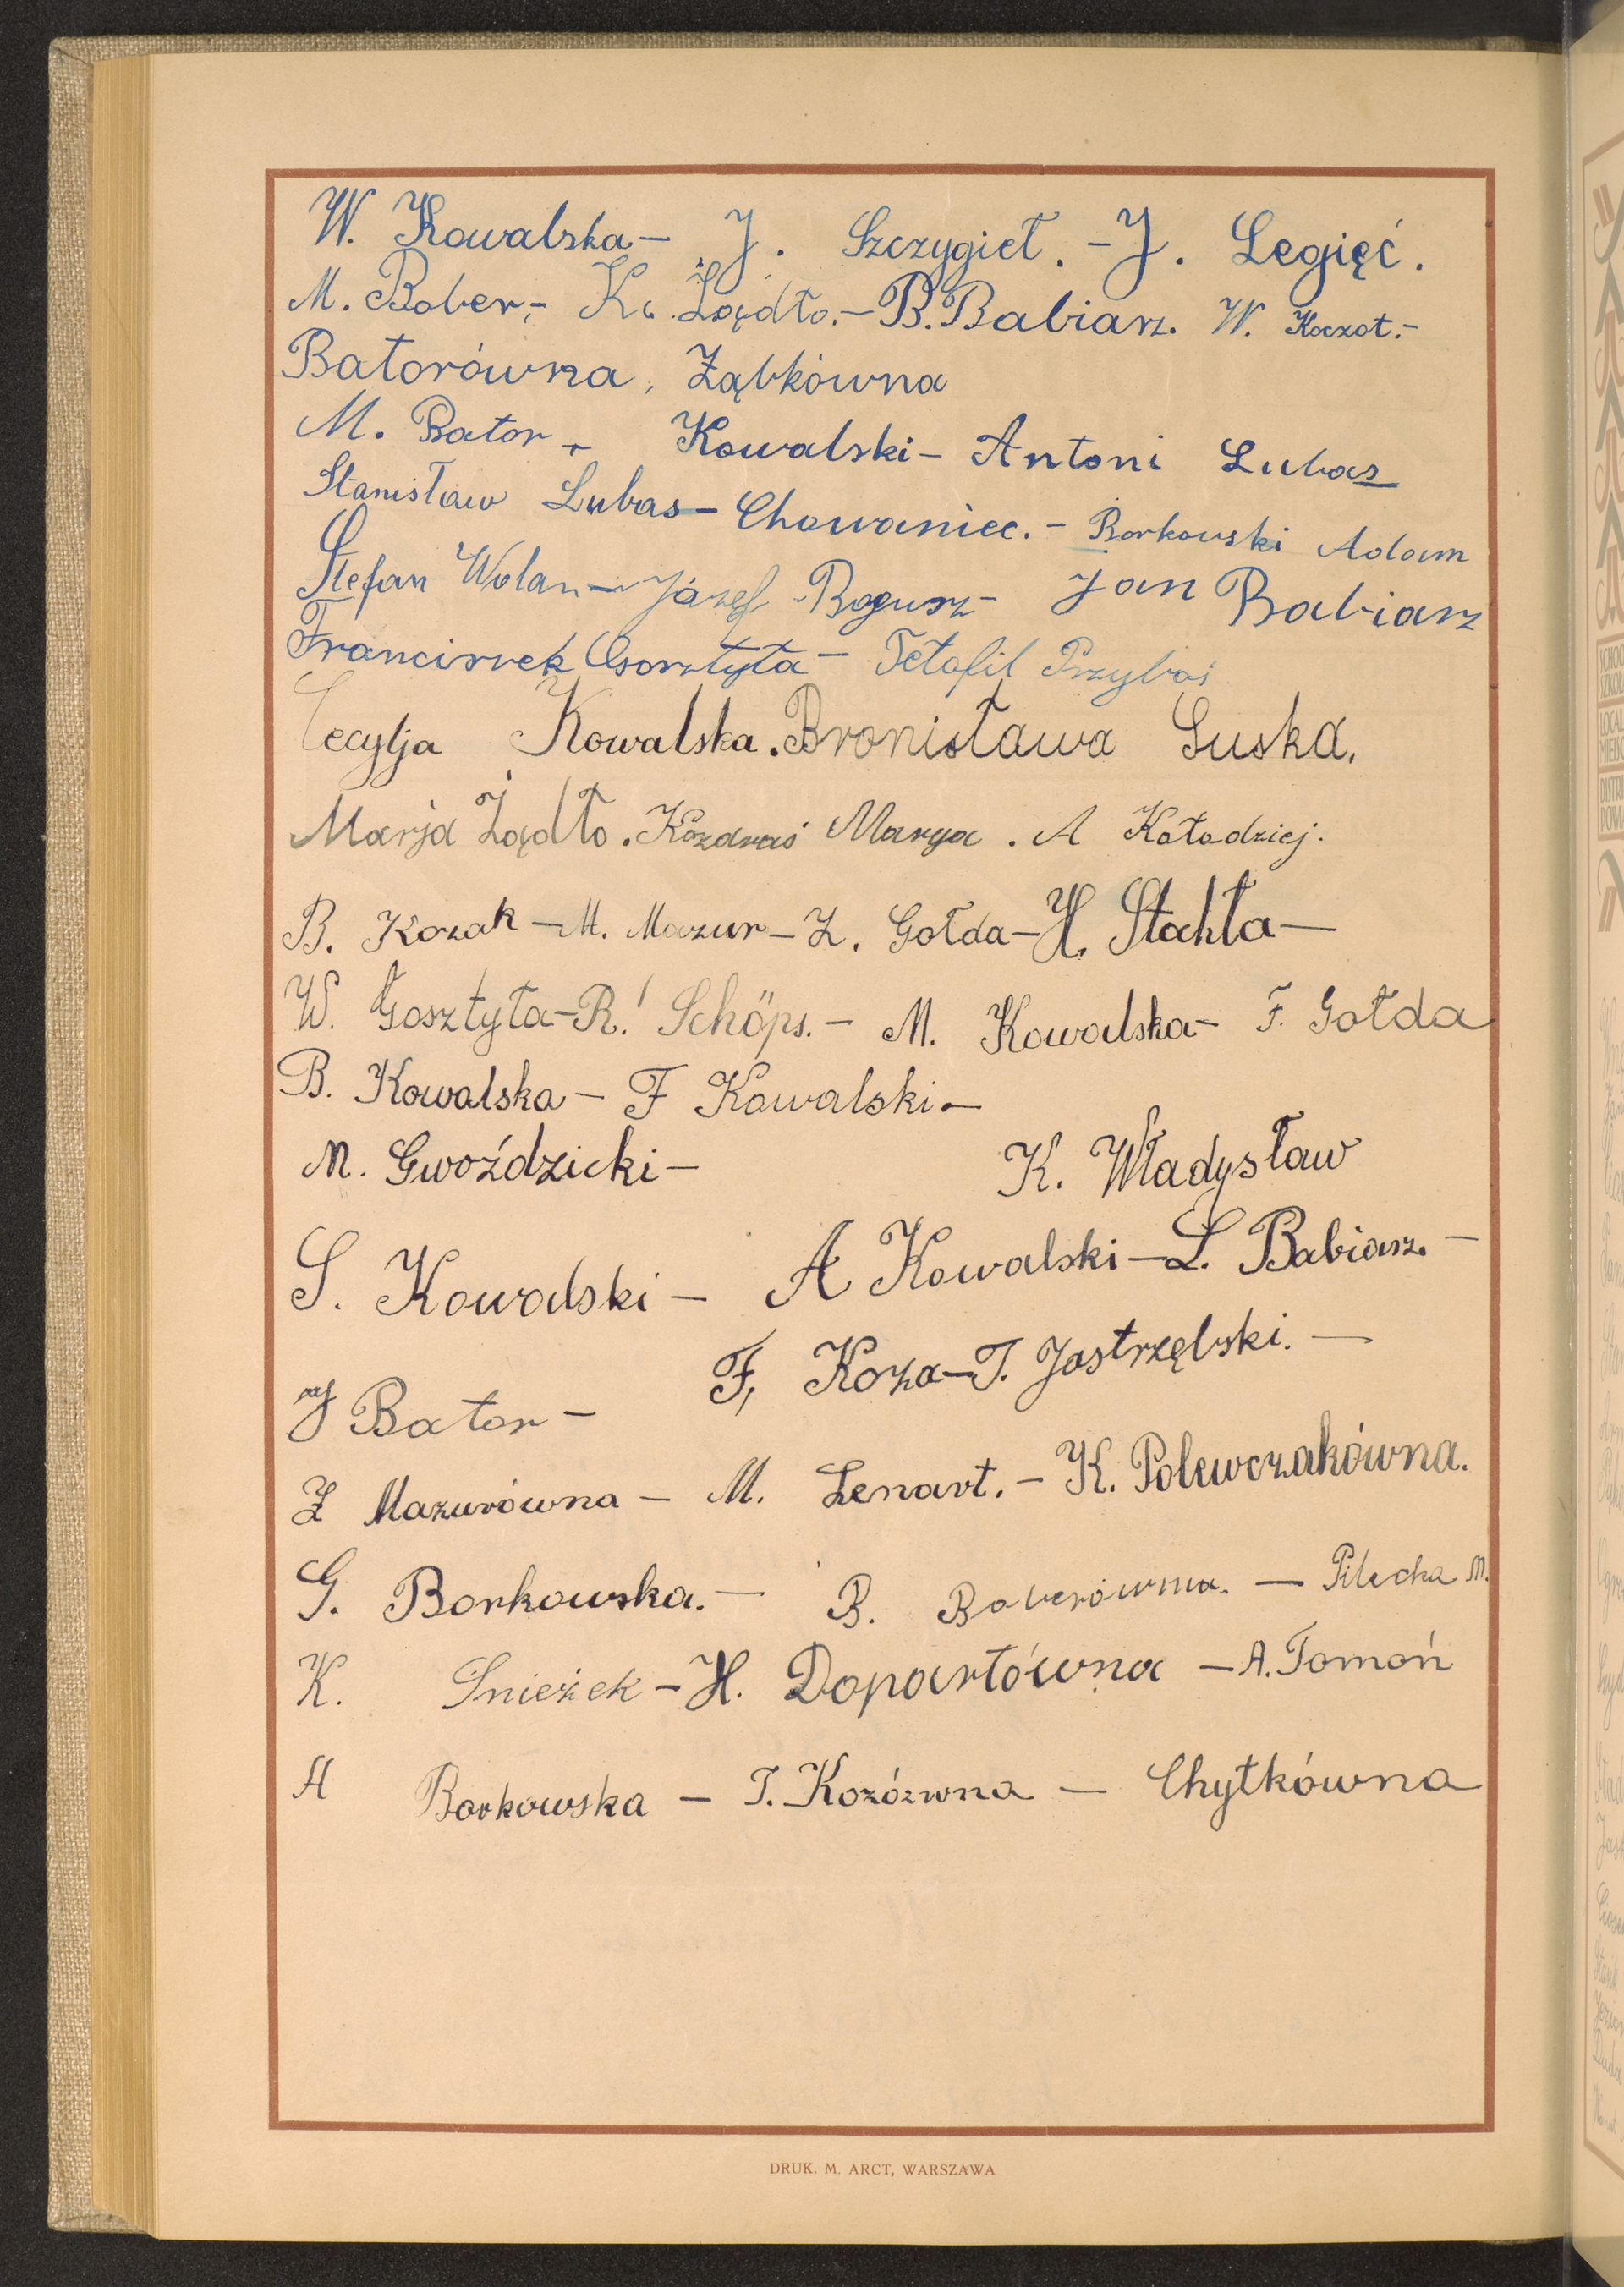 W. Kowalska – J. Szczygieł. – J. Legięć.
M. Bober, – K. Żądło. – B. Babiarz. W. Koczot. –
Batorówna, Ząbkówna
M. Bator – Kowalski – Antoni Lubas
Stanisław Lubas – Chowaniec. – Borkowski Adam
Stefan Wolan – Józef Bogusz – Jan Babiarz
Franciszek Gosztyła – Przyboś
Cecylja Kowalska. Bronisława Suska.
Marja Żądło. Kozdraś Marya. A Kołodziej.
B. Kozak – M. Mazur – Z. Gołda – H. Stachła –
W. Gosztyła – R. Schöps. – M. Kowalska – F. Gołda
B. Kowalska – F Kowalski –
M. Gwoździcki – K. Władysław
S. Kowalski – A Kowalski – L. Babiarz. –
J Bator – F. Koza – T. Jastrzębski. –
Z Mazurówna – M. Lenart. – K. Polewczakówna.
G. Borkowska. – B. Boberówna. – Pilecka M.
K. Snieżek – H. Dopartówna – A. Tomoń
H Borkowska – T. Kozózwna – Chytkówna
DRUK. M. ARCT, WARSZAWA